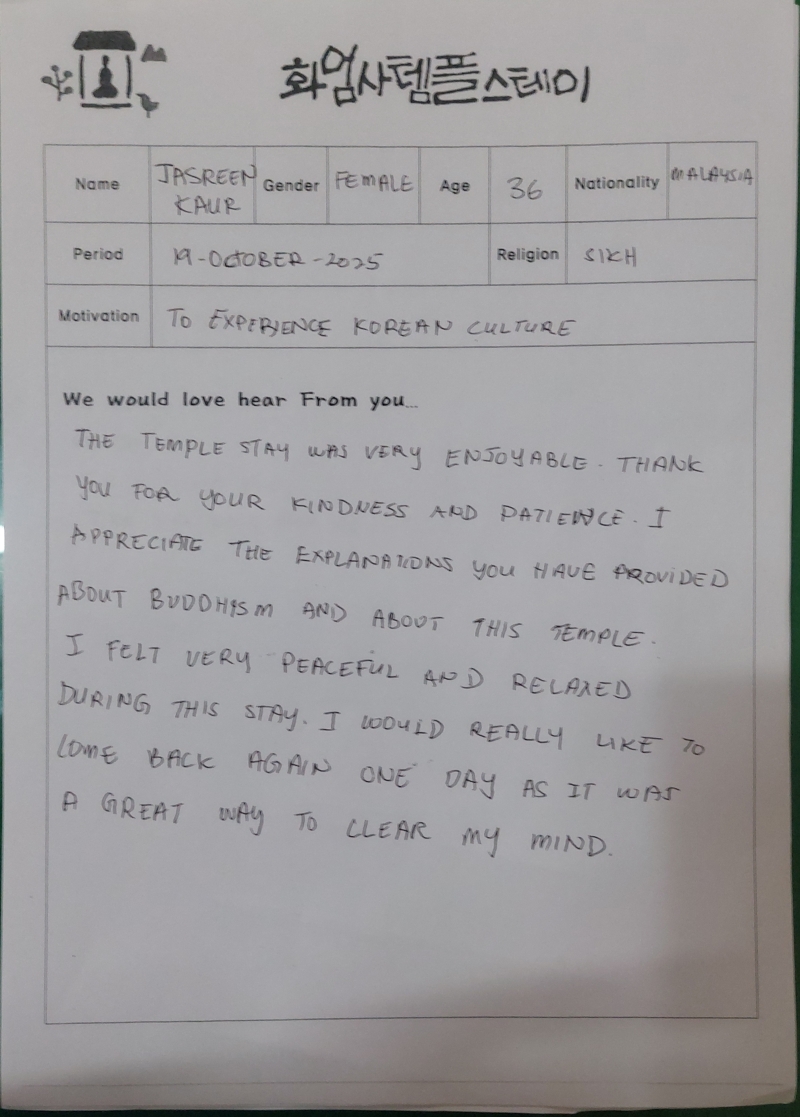 화엄사템플스테이
Name JASREEN KAUR Gender FEMALE Age 36 Nationality MALAYSIA
Period 19-OCTOBER-2025 Religion SIKH
Motivation TO EXPERIENCE KOREAN CULTURE
We would love hear From you...
THE TEMPLE STAY WAS VERY ENJOYABLE. THANK
YOU FOR YOUR KINDNESS AND PATIENCE. I
APPRECIATE THE EXPLANATIONS YOU HAVE PROVIDED
ABOUT BUDDHISM AND ABOUT THIS TEMPLE.
I FELT VERY PEACEFUL AND RELAXED
DURING THIS STAY. I WOULD REALLY LIKE TO
COME BACK AGAIN ONE DAY AS IT WAS
A GREAT WAY TO CLEAR MY MIND.